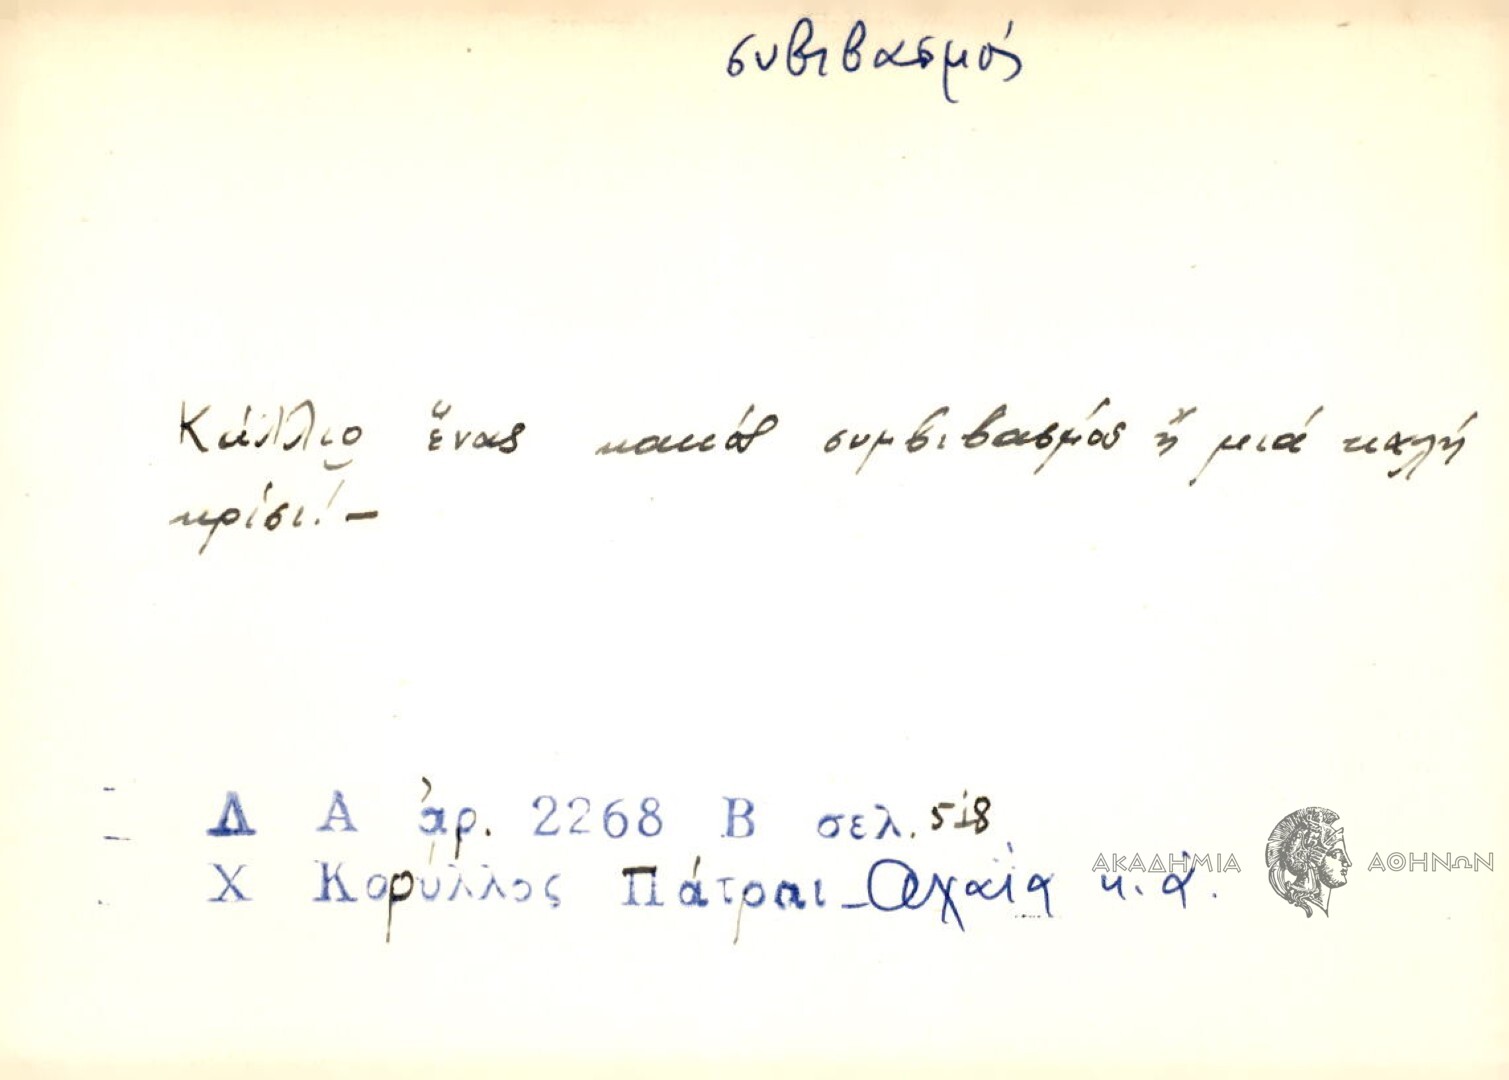 συβιβασμός
Κάλλιο ἕνας κακός συμβιβασμός ἤ μιά καλή
κρίσι! –
Δ Α ἀρ. 2268 Β σελ. 518
Χ Κορύλλος Πάτραι – Ἀχαΐα κ. ἀ.
ΑΚΑΔΗΜΙΑ ΑΘΗΝΩΝ